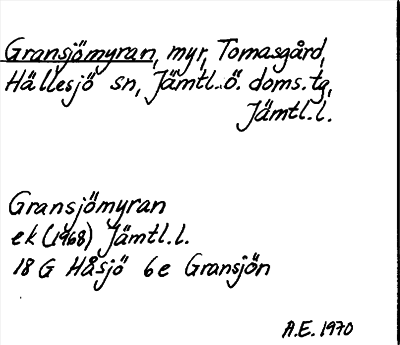 Gransjömyran, myr, Tomasgård,
Hällesjö sn, Jämtl. ö. doms. tg,
Jämtl. l.
Gransjömyran
ek (1968) Jämtl. l.
18 G Håsjö 6 e Gransjön
A.E. 1970